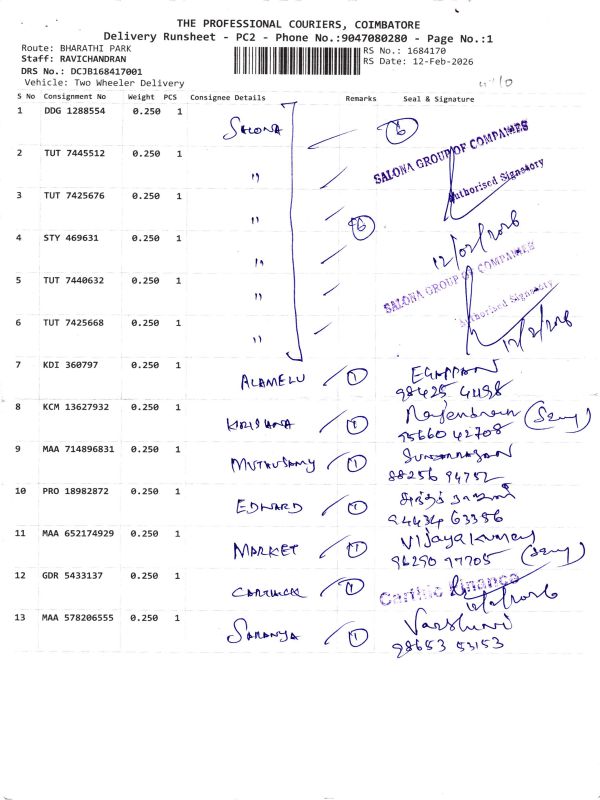 THE PROFESSIONAL COURIERS, COIMBATORE
Delivery Runsheet - PC2 - Phone No.:9047080280 - Page No.:1
Route: BHARATHI PARK
Staff: RAVICHANDRAN
DRS No.: DCJB168417001
Vehicle: Two Wheeler Delivery
RS No.: 1684170
RS Date: 12-Feb-2026
S No Consignment No Weight PCS Consignee Details Remarks Seal & Signature
1 DDG 1288554 0.250 1 SALONA 6
SALONA GROUP OF COMPANIES
2 TUT 7445512 0.250 1 "
Authorised Signatory
3 TUT 7425676 0.250 1 " 6
12/02/2026
4 STY 469631 0.250 1 "
SALONA GROUP OF COMPANIES
5 TUT 7440632 0.250 1 "
Authorised Signatory
6 TUT 7425668 0.250 1 "
12/2/2026
7 KDI 360797 0.250 1 ALAMELU 1 EGAPPAN
98425 4498
8 KCM 13627932 0.250 1 KRISHNA 1
95660 42708
9 MAA 714896831 0.250 1 MUTHUSAMY 1
88256 94752
10 PRO 18982872 0.250 1 EDWARD 1
94434 63356
11 MAA 652174929 0.250 1 MARKET 1 Vijayakumar
96290 97705
12 GDR 5433137 0.250 1 CARTHICK 1 Carthic Finance
12/2/2026
13 MAA 578206555 0.250 1 SARANYA 1 Varshini
98653 53153